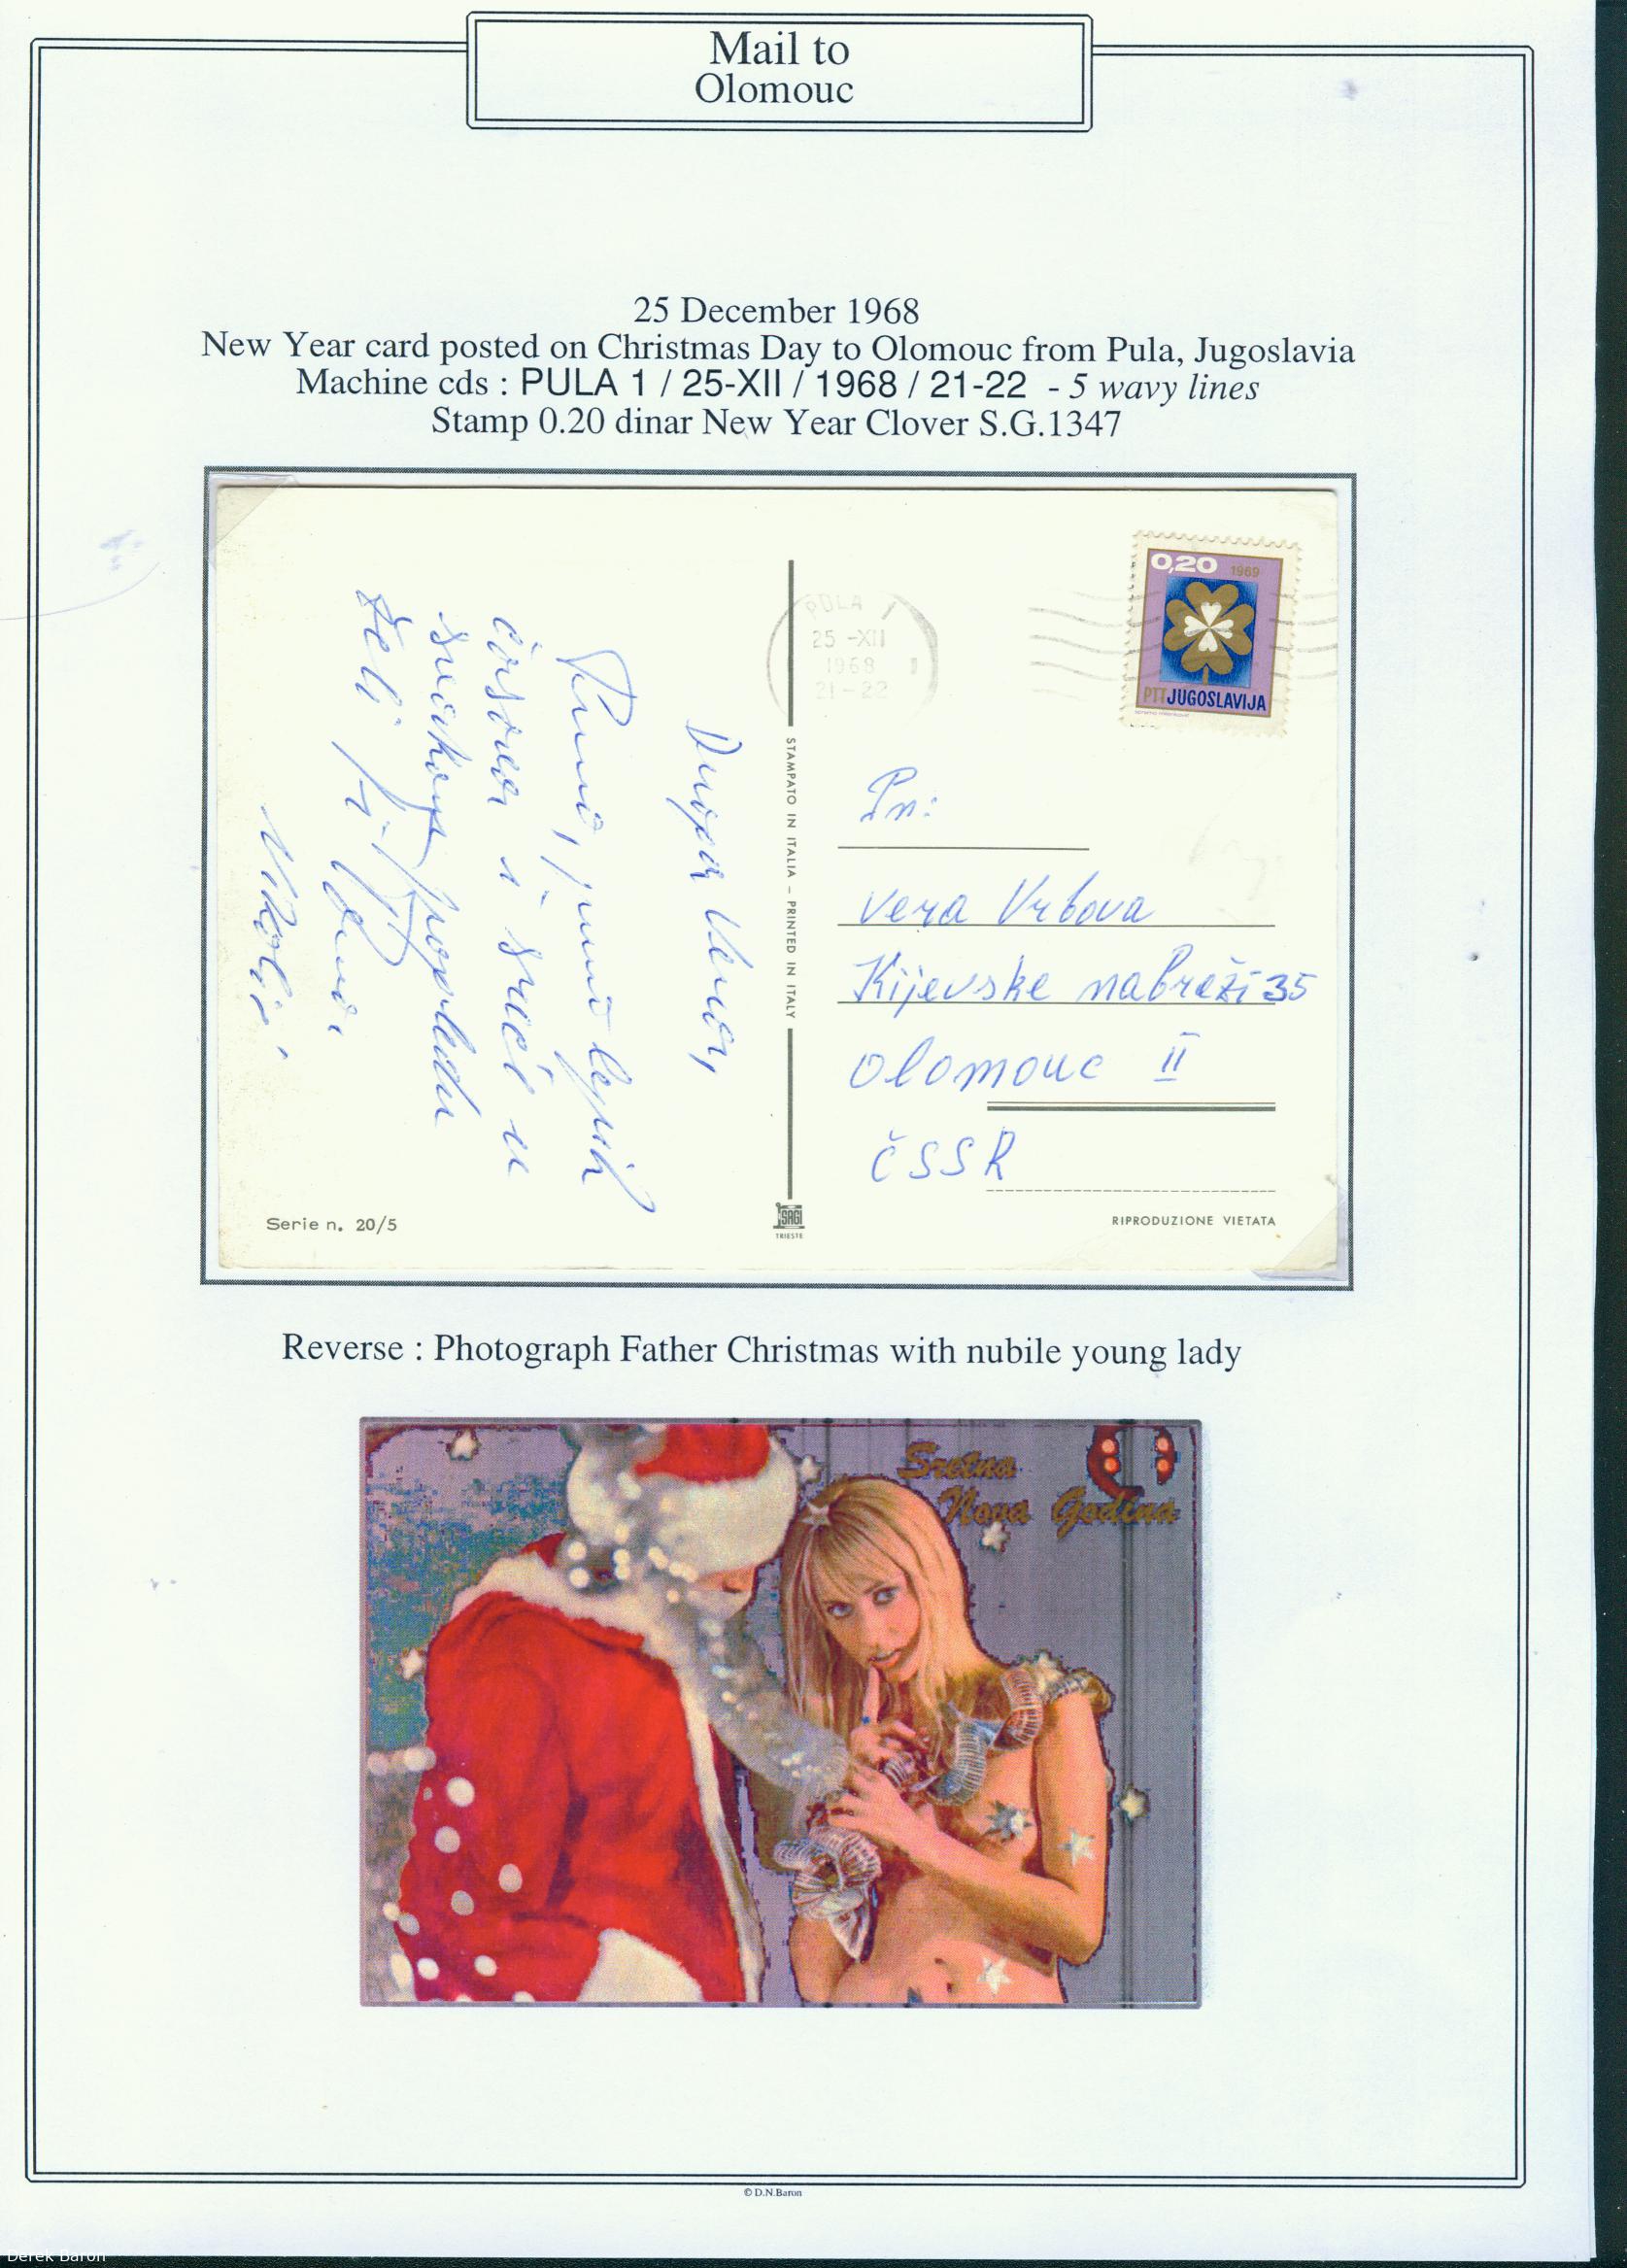 Mail to
Olomouc
25 December 1968
New Year card posted on Christmas Day to Olomouc from Pula, Jugoslavia
Machine cds : PULA 1 / 25-XII / 1968 / 21-22 - 5 wavy lines
Stamp 0.20 dinar New Year Clover S.G.1347
PULA 1
25 -XII
1968
21-22
0,20 1969
PTT JUGOSLAVIJA
Draga Vera,
Puno, puno lepih
časova i sreće u
svakom pogledu
želi ti
STAMPATO IN ITALIA – PRINTED IN ITALY
Pn:
Vera Vrbova
Kijevske nabřeží 35
Olomouc II
ČSSR
Serie n. 20/5
SAGI
TRIESTE
RIPRODUZIONE VIETATA
Reverse : Photograph Father Christmas with nubile young lady
Sretna
Nova Godina
© D.N.Baron
Derek Baron